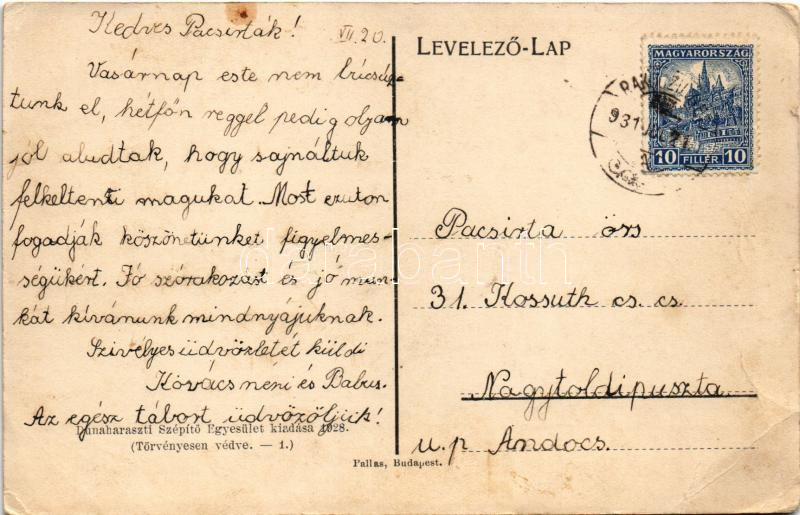 Kedves Pacsirták!
VII. 20.
Vasárnap este nem búcsúz-
tunk el, hétfőn reggel pedig olyan
jól aludtak, hogy sajnáltuk
felkelteni magukat. Most ezuton
fogadják köszönetünket figyelmes-
ségükért. Jó szórakozást és jó mun-
kát kívánunk mindnyájuknak.
Szivélyes üdvözletét küldi
Kovács néni és Babus.
Az egész tábort üdvözöljük!
Dunaharaszti Szépítő Egyesület kiadása 1928.
(Törvényesen védve. — 1.)
Pallas, Budapest.
LEVELEZŐ-LAP
MAGYARORSZÁG
10 FILLÉR 10
931
Pacsirta örs
31. Kossuth cs. cs.
Nagytoldipuszta
u. p. Andocs.
darabanth